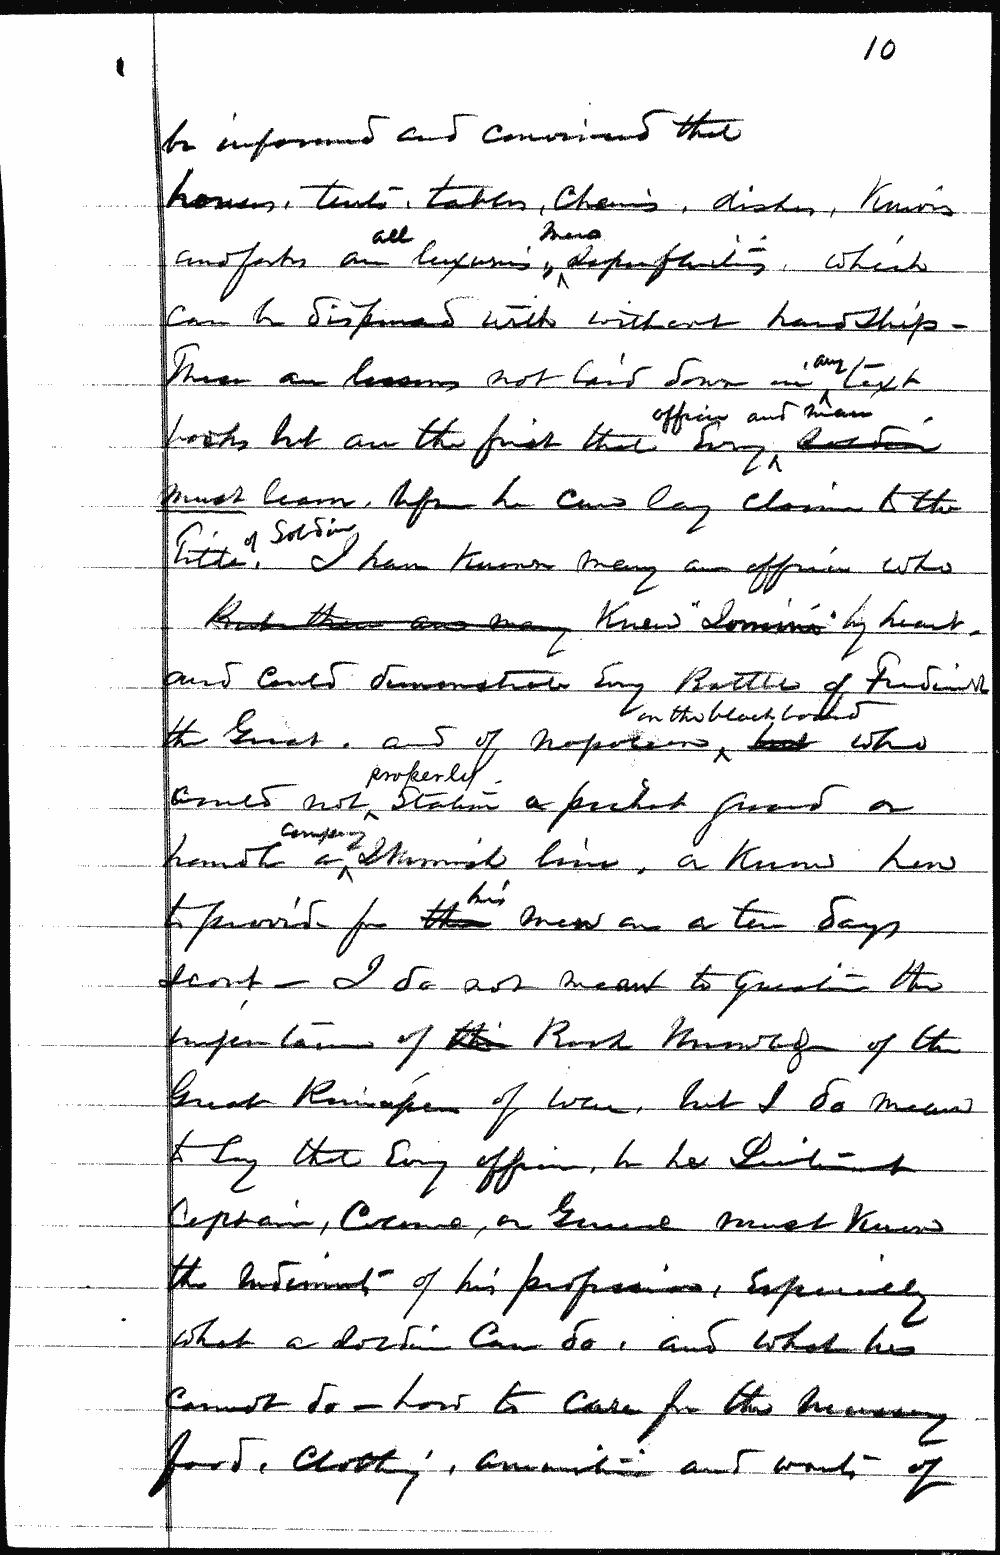 10
be informed and convinced that
houses, tents, tables, chairs, dishes, Knives
and forks are all luxuries, mere superfluities, which
can be dispensed with without hardship -
These are lessons not laid down in any text
books but are the first that every officer and man soldier
must learn, before he can lay claim to the
title of Soldier. I have known many an officer who
But there are many Knew "Jomini" by heart,
and could demonstrate every Battle of Frederick
the Great, and of Napoleon on the blackboard, but who
could not properly Station a picket guard or
handle a company Skirmish line, or know how
to provide for the his men on a ten days
scout - I do not mean to question the
importance of this Book Knowledge of the
Great Principles of War, but I do mean
to say that every officer, be he Lieutenant
Captain, Colonel, or General must Know
the rudiments of his profession, especially
what a soldier can do, and what he
cannot do - how to care for the necessary
food, clothing, ammunition and wants of